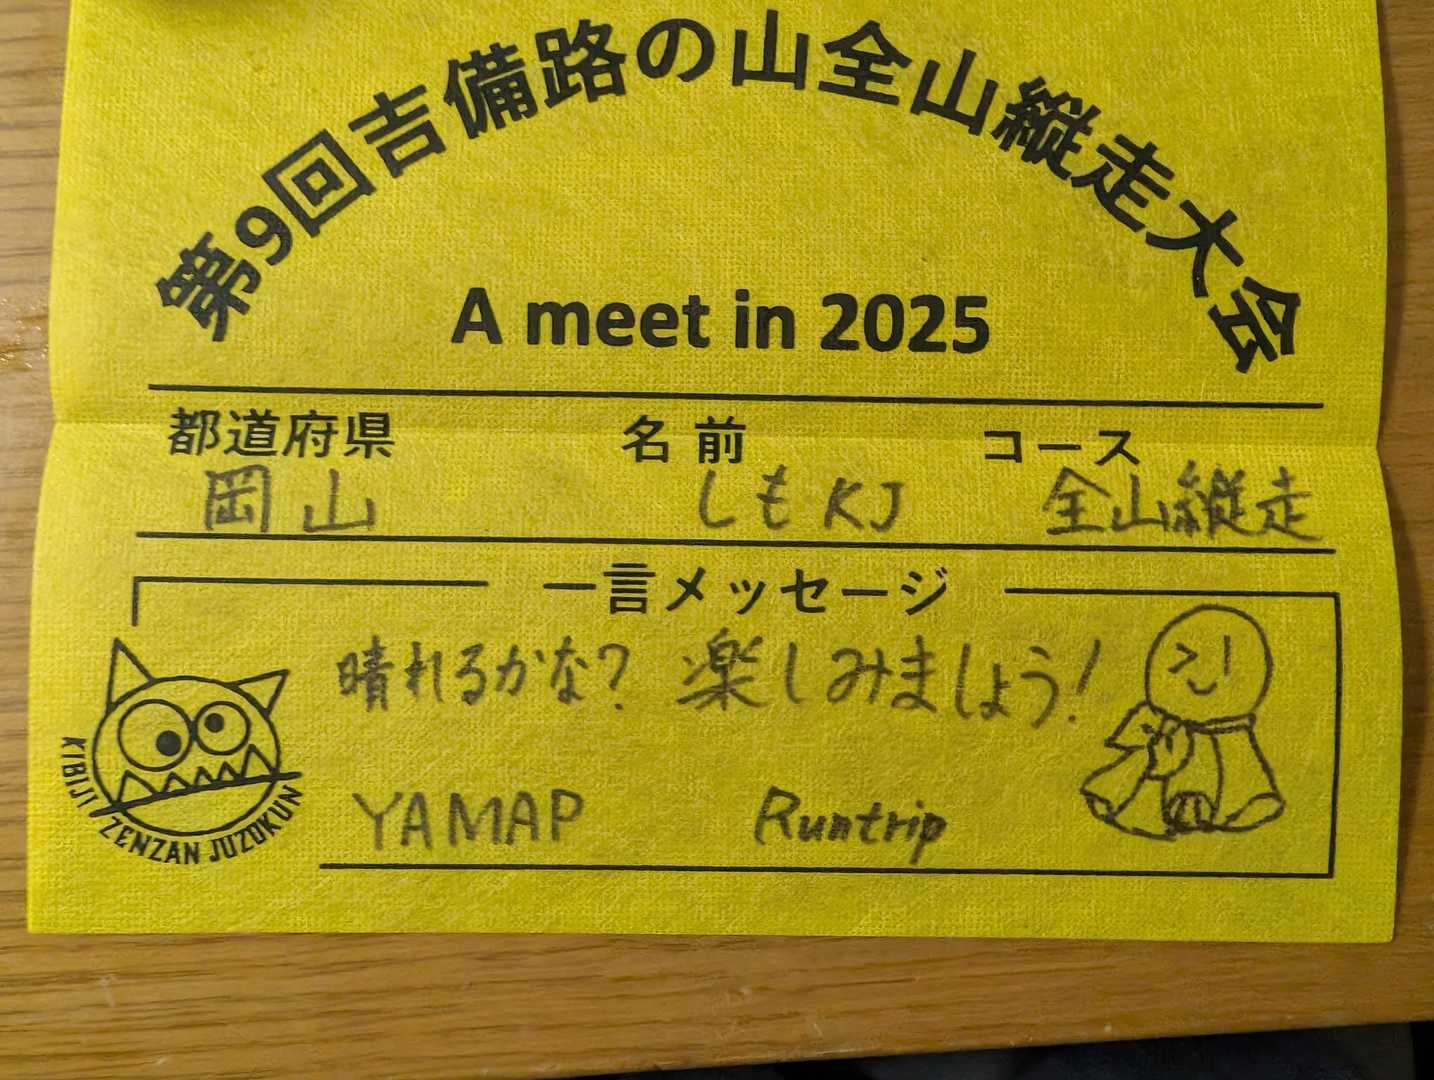 第9回吉備路の山全山縦走大会
A meet in 2025
都道府県 名前 コース
岡山 しもKJ 全山縦走
一言メッセージ
晴れるかな? 楽しみましょう!
YAMAP Runtrip
KIBIJI ZENZAN JUZOKUN